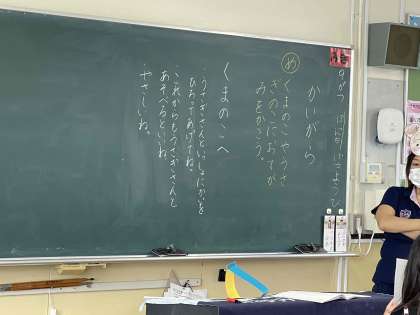 かいがら
め
くまのこやうさ
ぎのこにおてが
みをかこう。
くまのこへ
・うさぎさんといっしょにかいを
ひろってあげてね。
・これからもうさぎさんと
あそべるといいね。
・やさしいね。